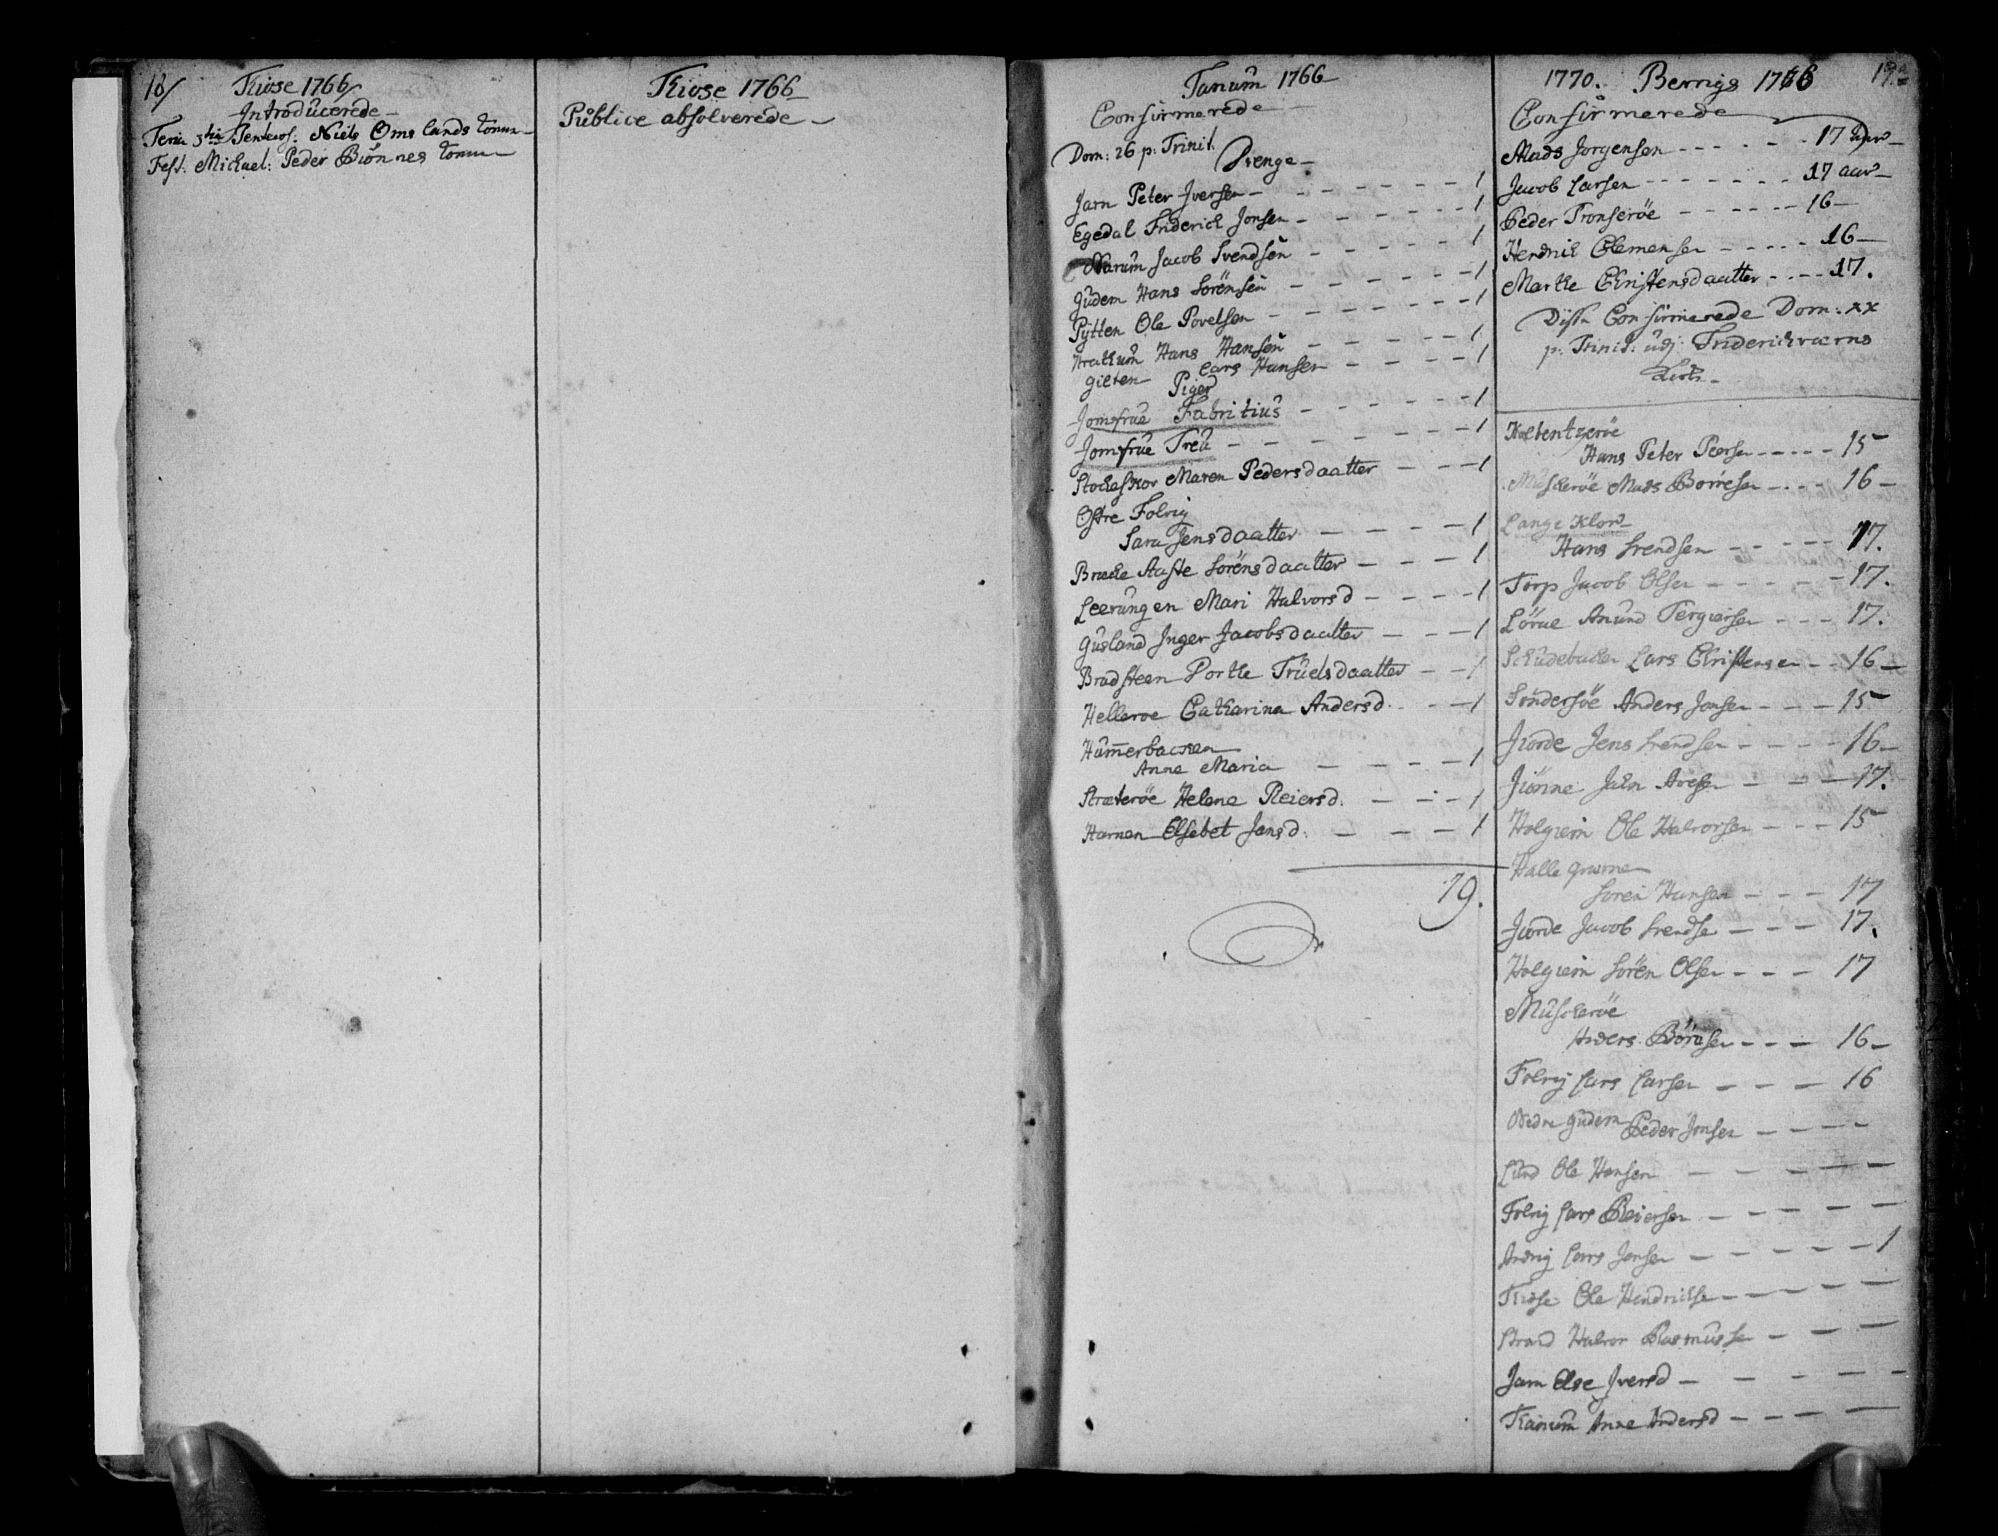 18/
Kiose 1766
Introducerede
Feria 3tia Pentecos: Niels Omslands Konne
Fest. Michael: Peder Biönnes Konne
Kiose 1766
Publice absolverede
Tanum 1766
Confirmerede
Dom: 26 p: Trinit.
Drenge
Jarn Peter Jversen - 1
Egedal Friderich Jonsen - 1
Narum Jacob Svendsen - 1
Gudem Hans Sörensen - 1
Pytten Ole Povelsen - 1
Hans Hansen - 1
Lars Hansen - 1
Piger
Jomfrue Fabritius - 1
Jomfrue Treu - 1
Maren Pedersdaatter - 1
Ostre Folvig
Sara Jensdaatter - 1
Aaste Sörensdaatter - 1
Leerungen Mari Halvorsd - 1
Gusland Jnger Jacobsdaatter - 1
Bradsteen Truelsdaatter - 1
Helleroe Catharina Andersd. - 1
Hum̅erbacken
Anne Maria - 1
Stræteröe Helene Reiersd. - 1
Hamnen Elsebet Jensd: - 1
19.
1770. Bervigs 1766
Confirmerede
Mads Jorgensen - 17 aar
Jacob Larsen - 17 aar
Peder Tronseröe - 16
Hendrich Clemensen - 16
Marthe Christensdaatter - 17.
Disse Confirmerede Dom: xx
p: Trinit: udj Friderichværns
Kirke
Hans Peter Peersen - 15
Muskeröe Mads Borresen - 16
Lange
Hans Svendsen - 17.
Torp Jacob Olsen - 17.
Anund Tergiersen - 17.
Lars Christensen - 16
Anders Jonsen - 15
Jens Svendsen - 16
17.
Ole Halvorsen - 15
Halle
Soren Hansen - 17
Jacob Svendse - 17.
Sören Olsen - 17
Muskeröe
Anders Börresen - 16
Folvig Lars Larsen - 16
Nedre Gudem Peder Jonsen
Lund Ole Hansen
Folvig Lars Reiersen
Arvig Lars Jensen - 1
Kiose Ole Hendrichse
Brand Halvor Rasmussen
Jarn Else Jversd
Anne Andersd